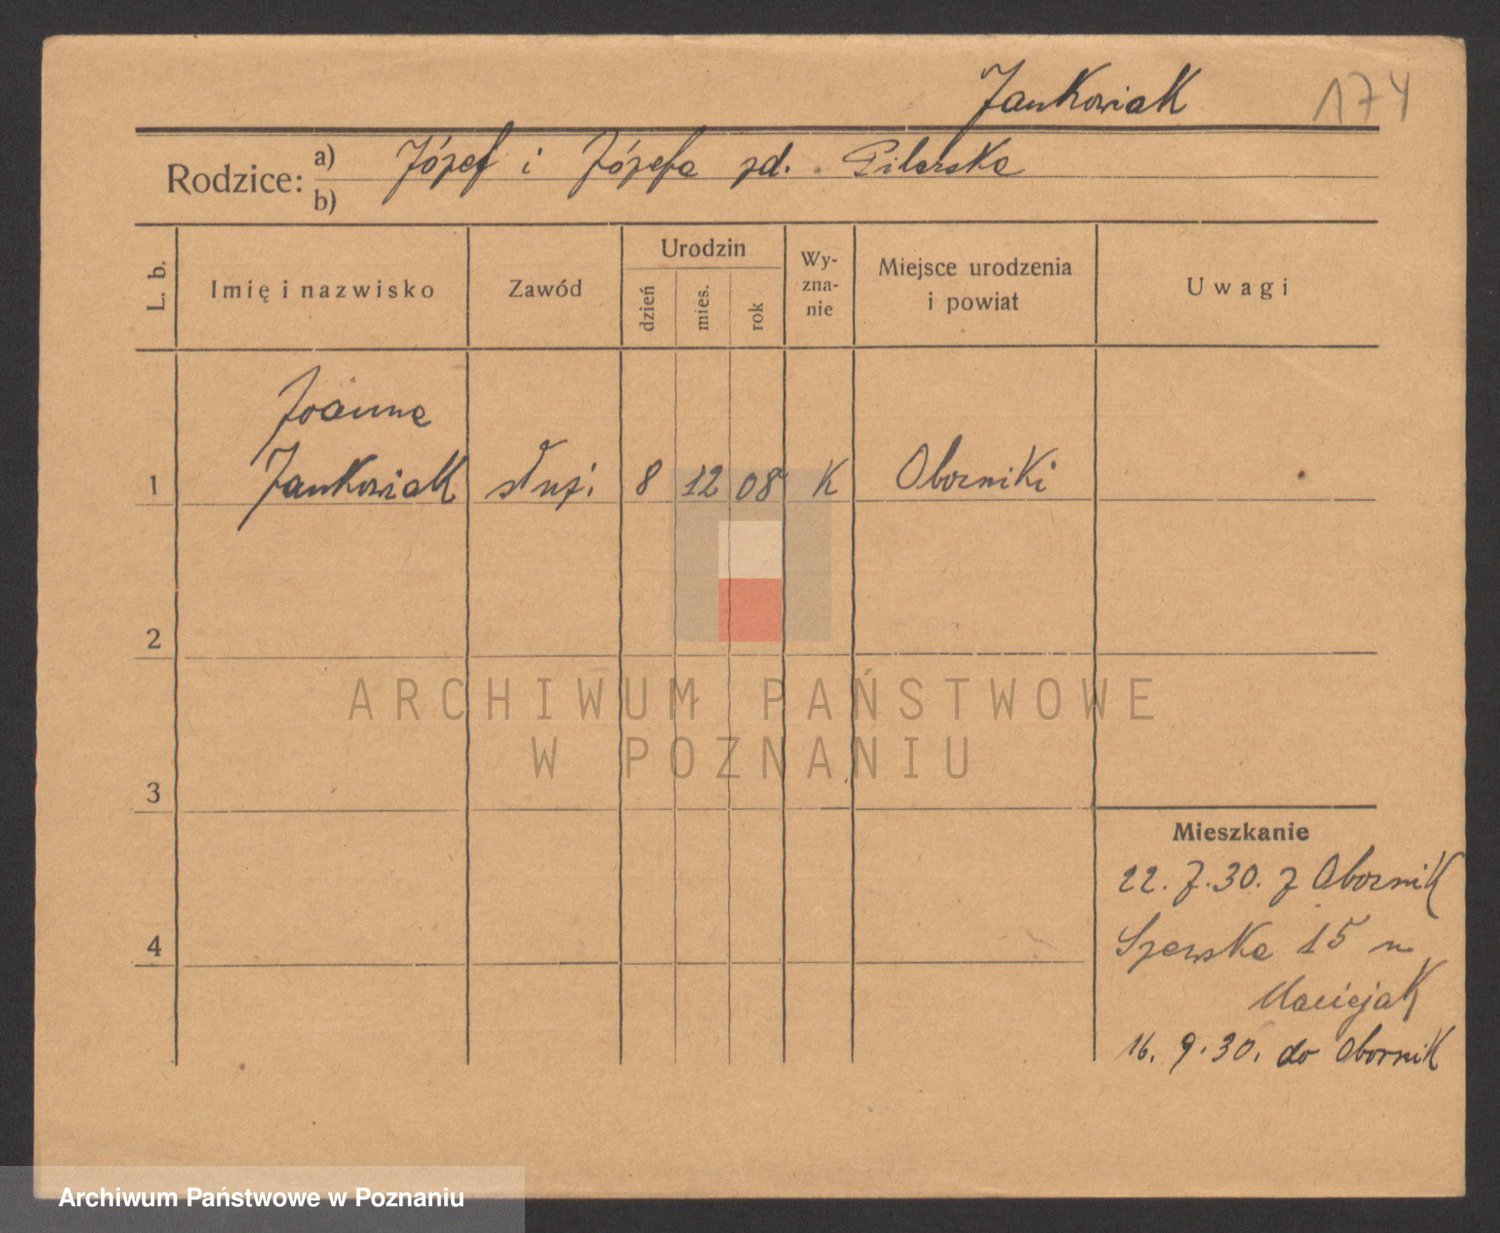 Jankowiak 174
Rodzice: a) Józef i Józefa zd. Pilarska
b)
L. b. Imię i nazwisko Zawód Urodzin dzień mies. rok Wy-zna-nie Miejsce urodzenia i powiat Uwagi
Joanna
1 Jankowiak służ. 8 12 08 K Oborniki
2
ARCHIWUM PAŃSTWOWE
W POZNANIU
3
Mieszkanie
22. 7. 30. z Obornik
4 Szewska 15 n
Maciejak
16. 9. 30. do Obornik
Archiwum Państwowe w Poznaniu